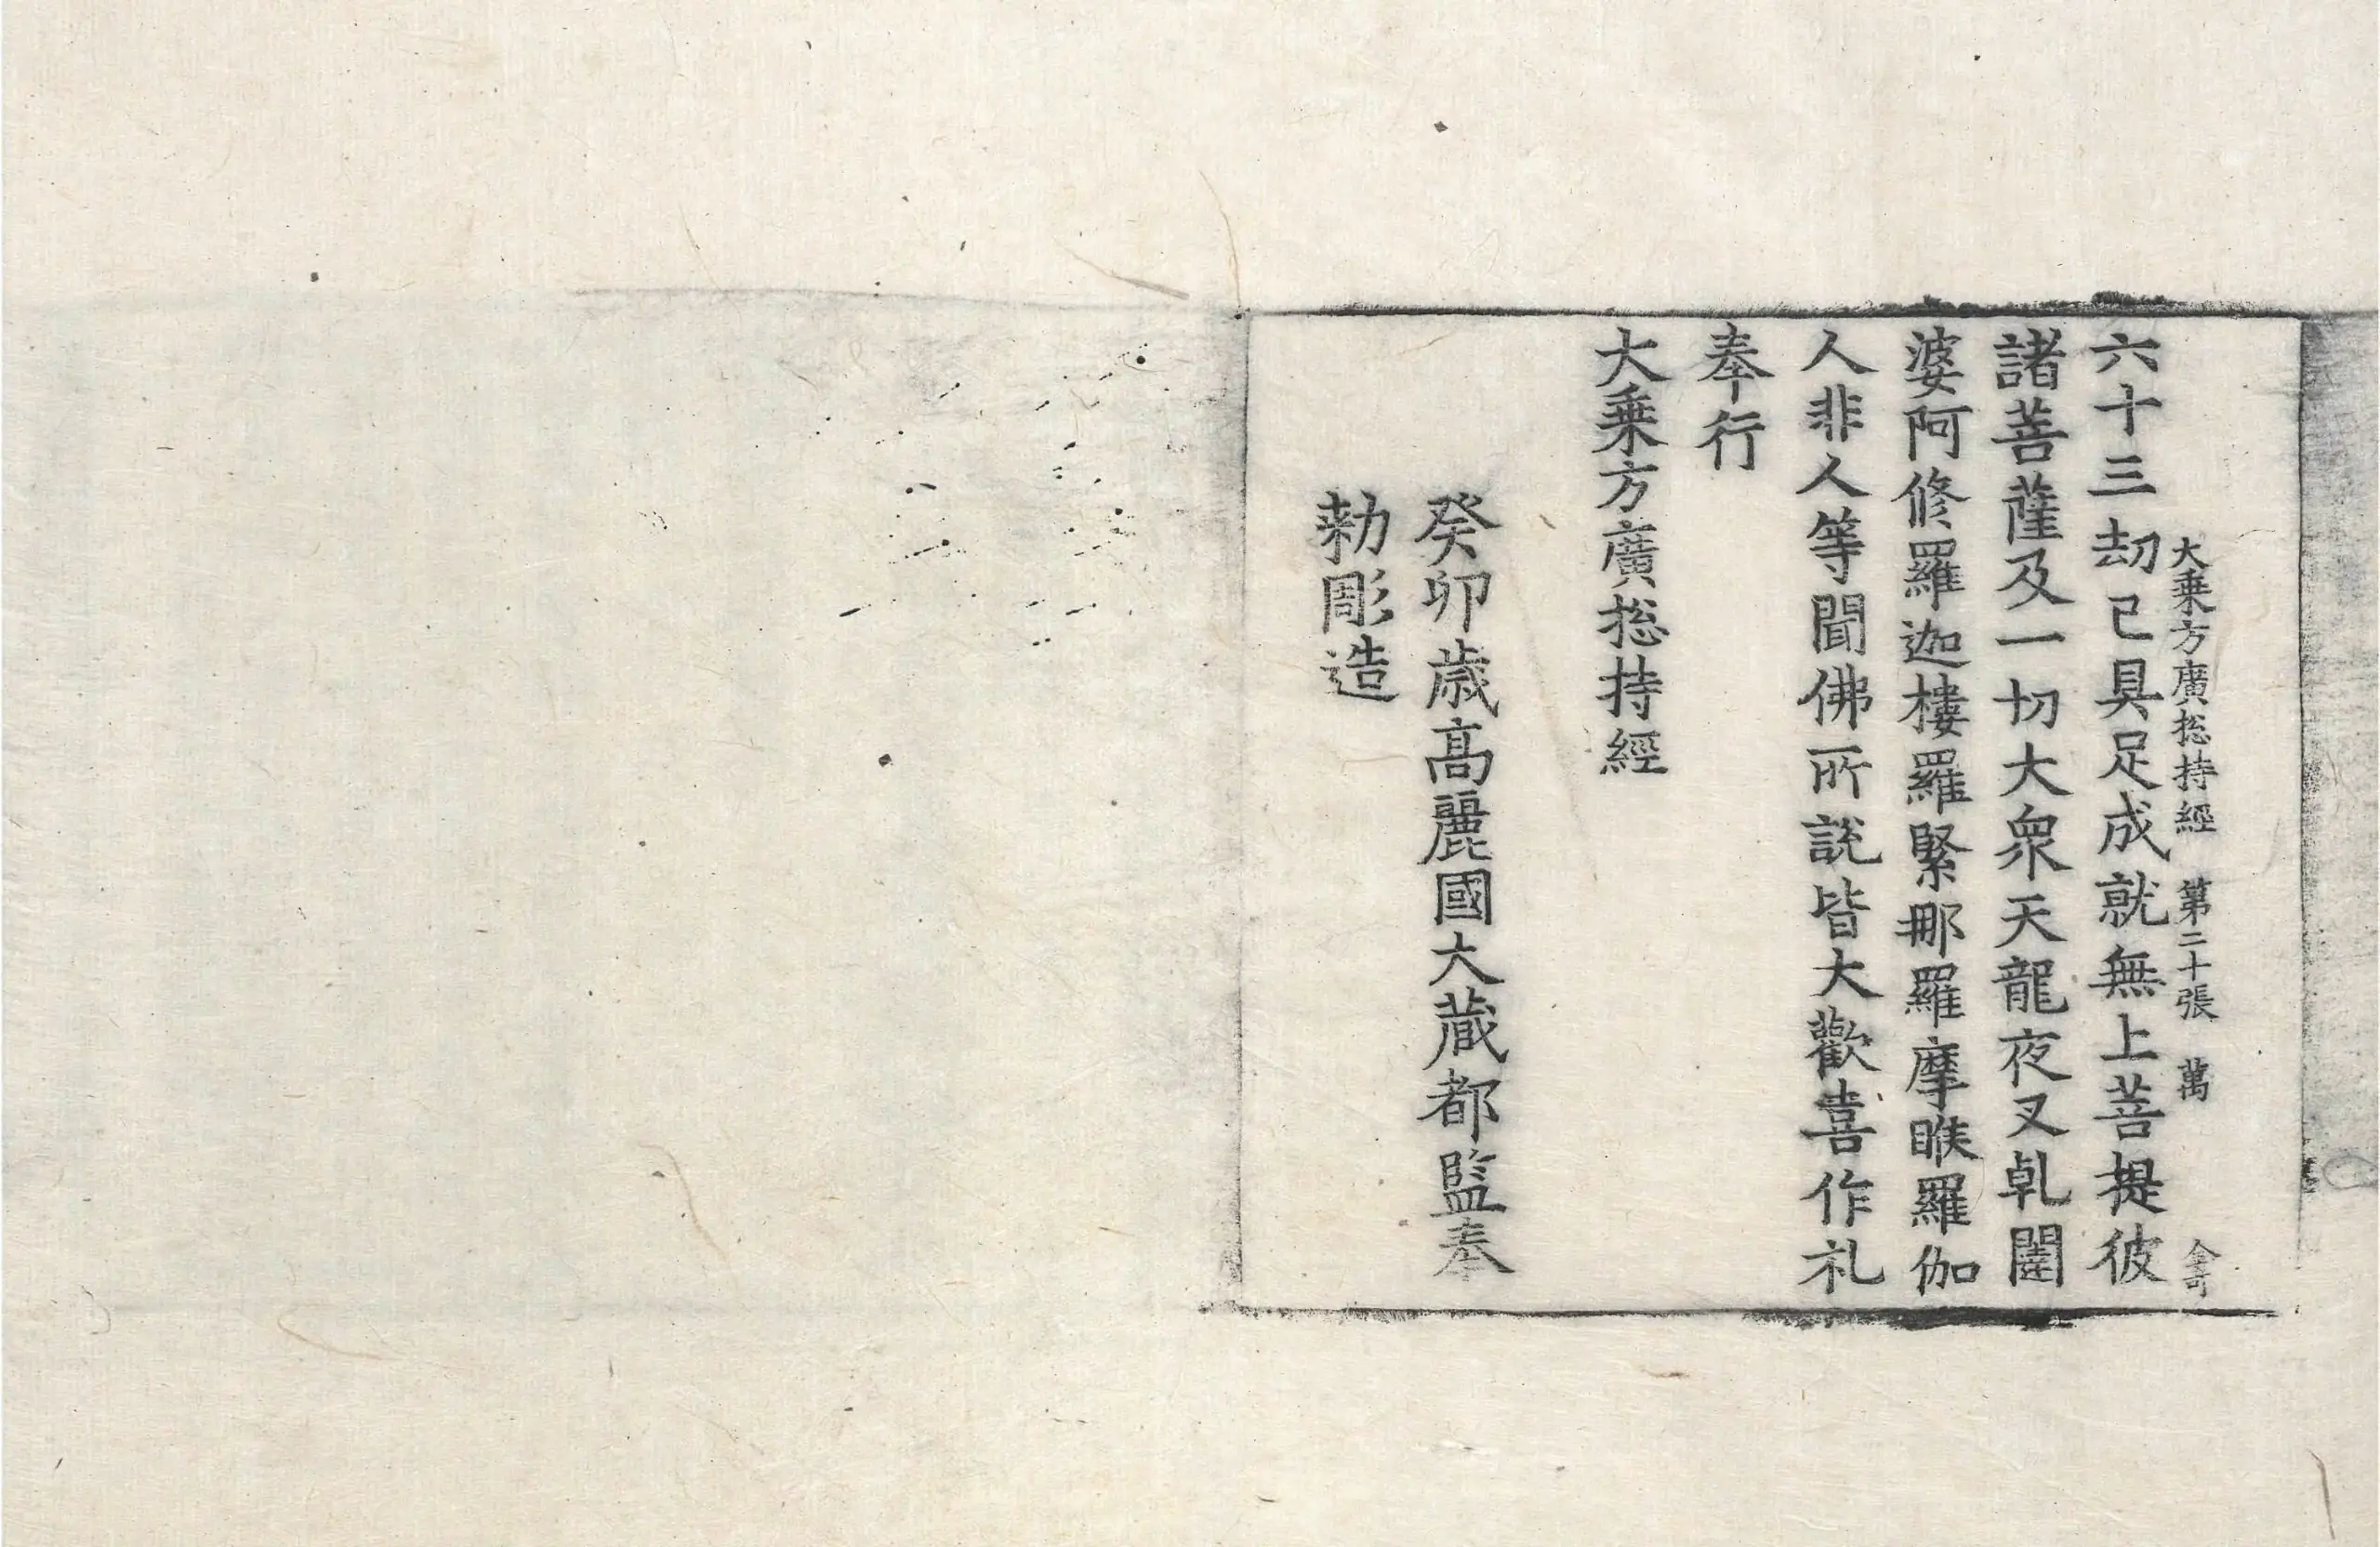 大乗方廣摠持經 第二十張 萬
六十三劫已具足成就無上菩提彼
諸菩薩及一切大衆天龍夜叉乹闥
婆阿修羅迦樓羅緊那羅摩睺羅伽
人非人等聞佛所說皆大歡喜作礼
奉行
大乗方廣摠持經
癸卯歳高麗國大藏都監奉
勅彫造